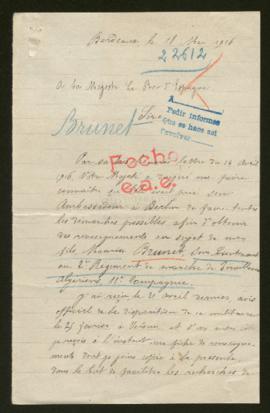 Bordeaux le 18 Mai 1916
22612
A Sa Majesté Le Roi d'Espagne
Sire
A
Pedir informes
que se hace así
Brunet
Par sa lettre du 14 Avril
Fecho
e.a.e.
Votre Majesté a daigné me faire
connaître
Ambassadeur à Berlin de faire toutes
les démarches possibles, afin d'obtenir
des renseignements au sujet de mon
fils Maurice Brunet, Sous Lieutenant
au 2e Régiment de marche de Tirailleurs
Algériens 11e Compagnie.
J'ai reçu le 21 avril dernier, avis
officiel de la disparition de ce militaire
le 25 janvier à
reçois à l'instant une fiche de renseigne-
ments dont je joins copie à la présente
dans le but de faciliter les recherches de